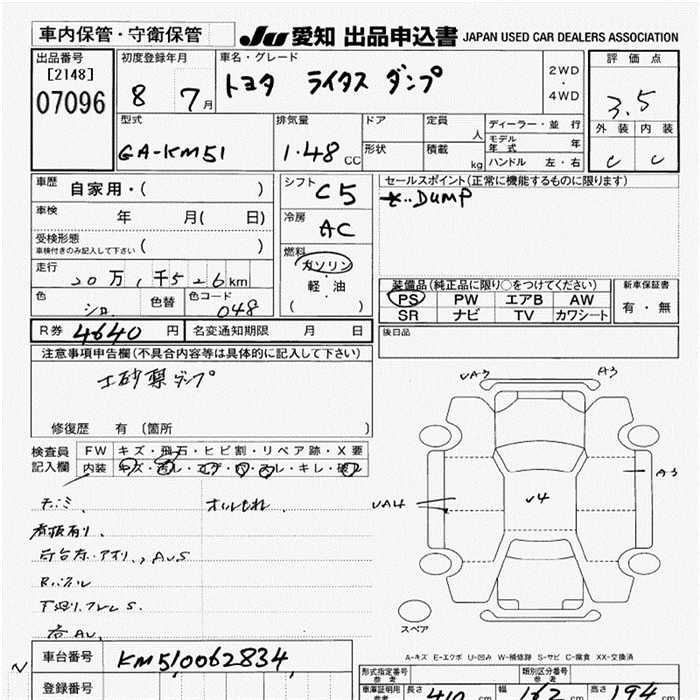 車内保管・守衛保管 JU 愛知 出品申込書 JAPAN USED CAR DEALERS ASSOCIATION
出品番号
[2148]
07096
初度登録年月
8 7月
車名・グレード
トヨタ ライタス ダンプ
2WD
・
4WD
評価点
3.5
外装 内装
C C
型式
GA-KM51
排気量
1.48 CC
ドア
形状
定員
人
積載
kg
ディーラー・並行
モデル年式 年
ハンドル 左・右
車歴 自家用・( )
車検 年 月( 日)
受検形態
車検付きのみ記入して下さい ( )
走行 20万,千526km
色 シロ 色替 色コード 048
R券 4640円 名変通知期限 月 日
シフト C5
冷房 AC
燃料
ガソリン
軽・油
( )
セールスポイント(正常に機能するものに限ります)
DUMP
装備品(純正品に限り○をつけてください)
PS PW エアB AW
SR ナビ TV カワシート
新車保証書
有・無
後日品
注意事項申告欄(不具合内容等は具体的に記入して下さい)
土砂禁ダンプ
修復歴 有 〔箇所 〕
検査員
記入欄
FW キズ・飛石・ヒビ割・リペア跡・X要
内装 キズ・ヨゴレ・コゲ・穴・スレ・キレ・破レ
オイルもれ、
看板有り、
荷台床・アオリ、AUS
下廻りフレS.
UA3
A3
A3
UA4
U4
スペア
A-キズ E-エクボ U-凹み W-補修跡 S-サビ C-腐食 XX-交換済
車台番号 KM510062834
登録番号
形式指定番号
参考
類別区分番号
参考
車庫証明用
参考
長さ 410 cm 幅 162 cm 高さ 194 cm